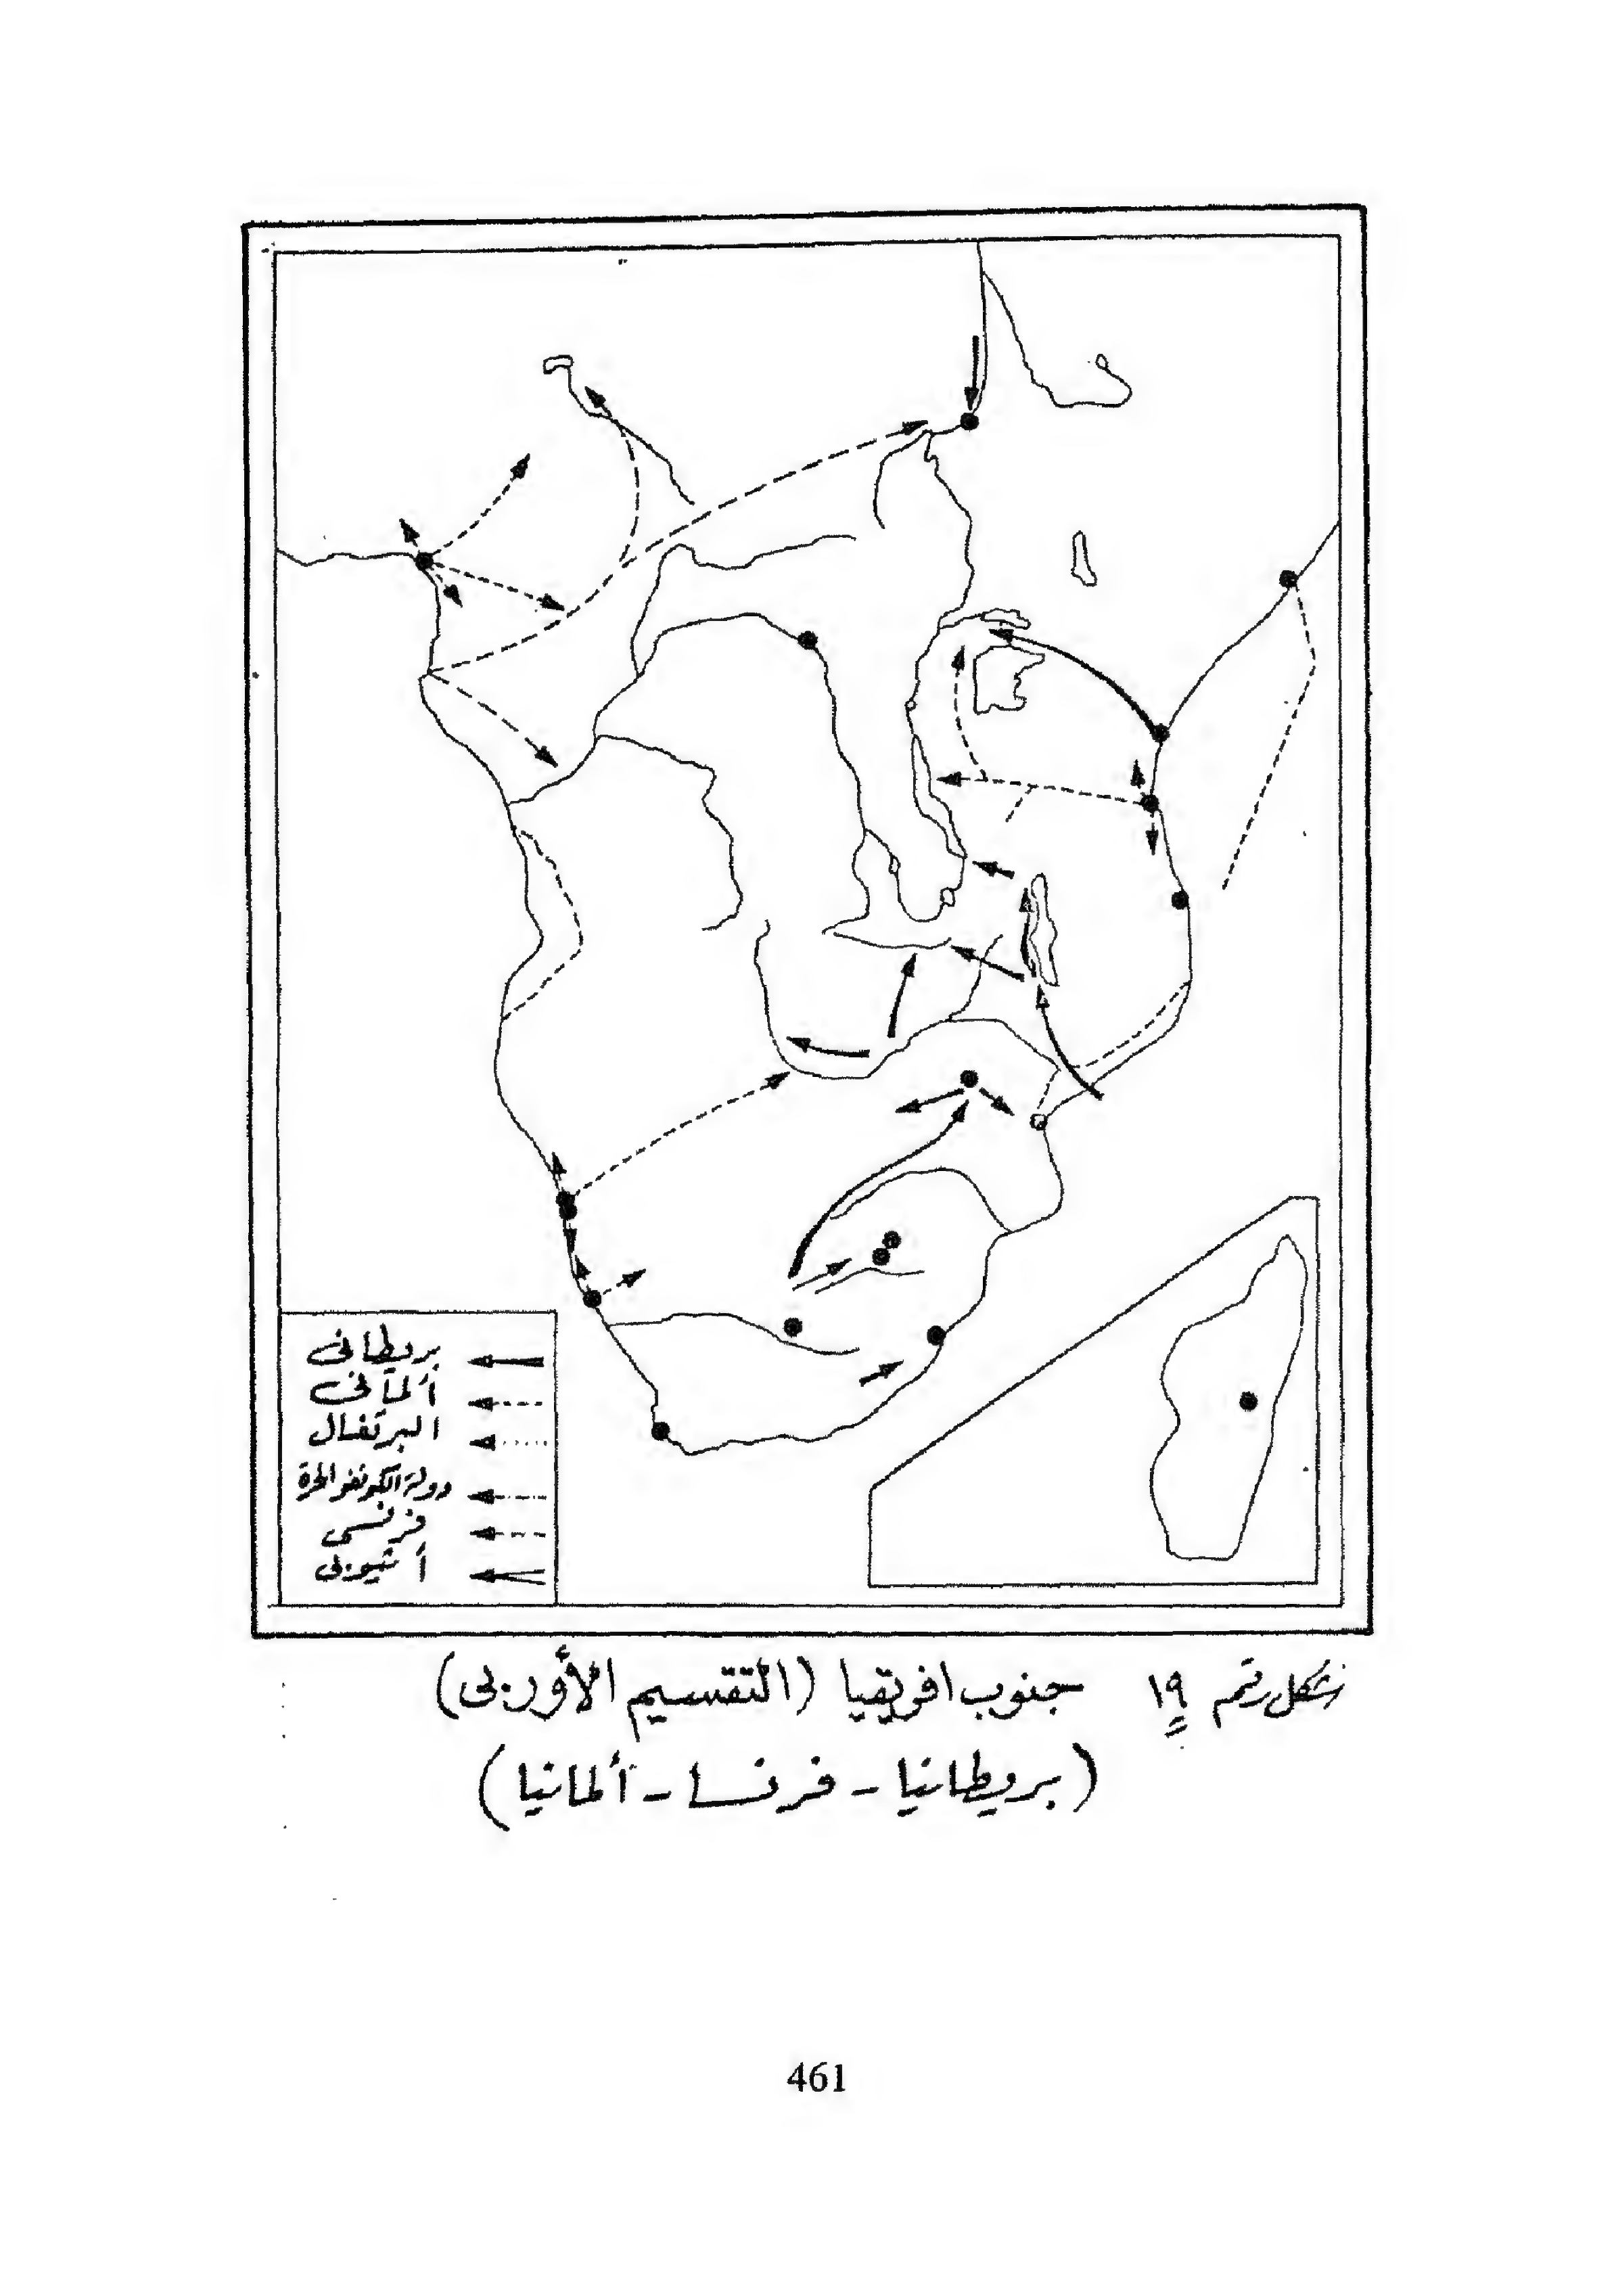 بريطانى
ألمانى
البرتغال
دولة الكونغو الحرة
فرنسى
أثيوبى
شكل رقم ١٩ جنوب افريقيا (التقسيم الأوربى)
(بريطانيا - فرنسا - ألمانيا)
461